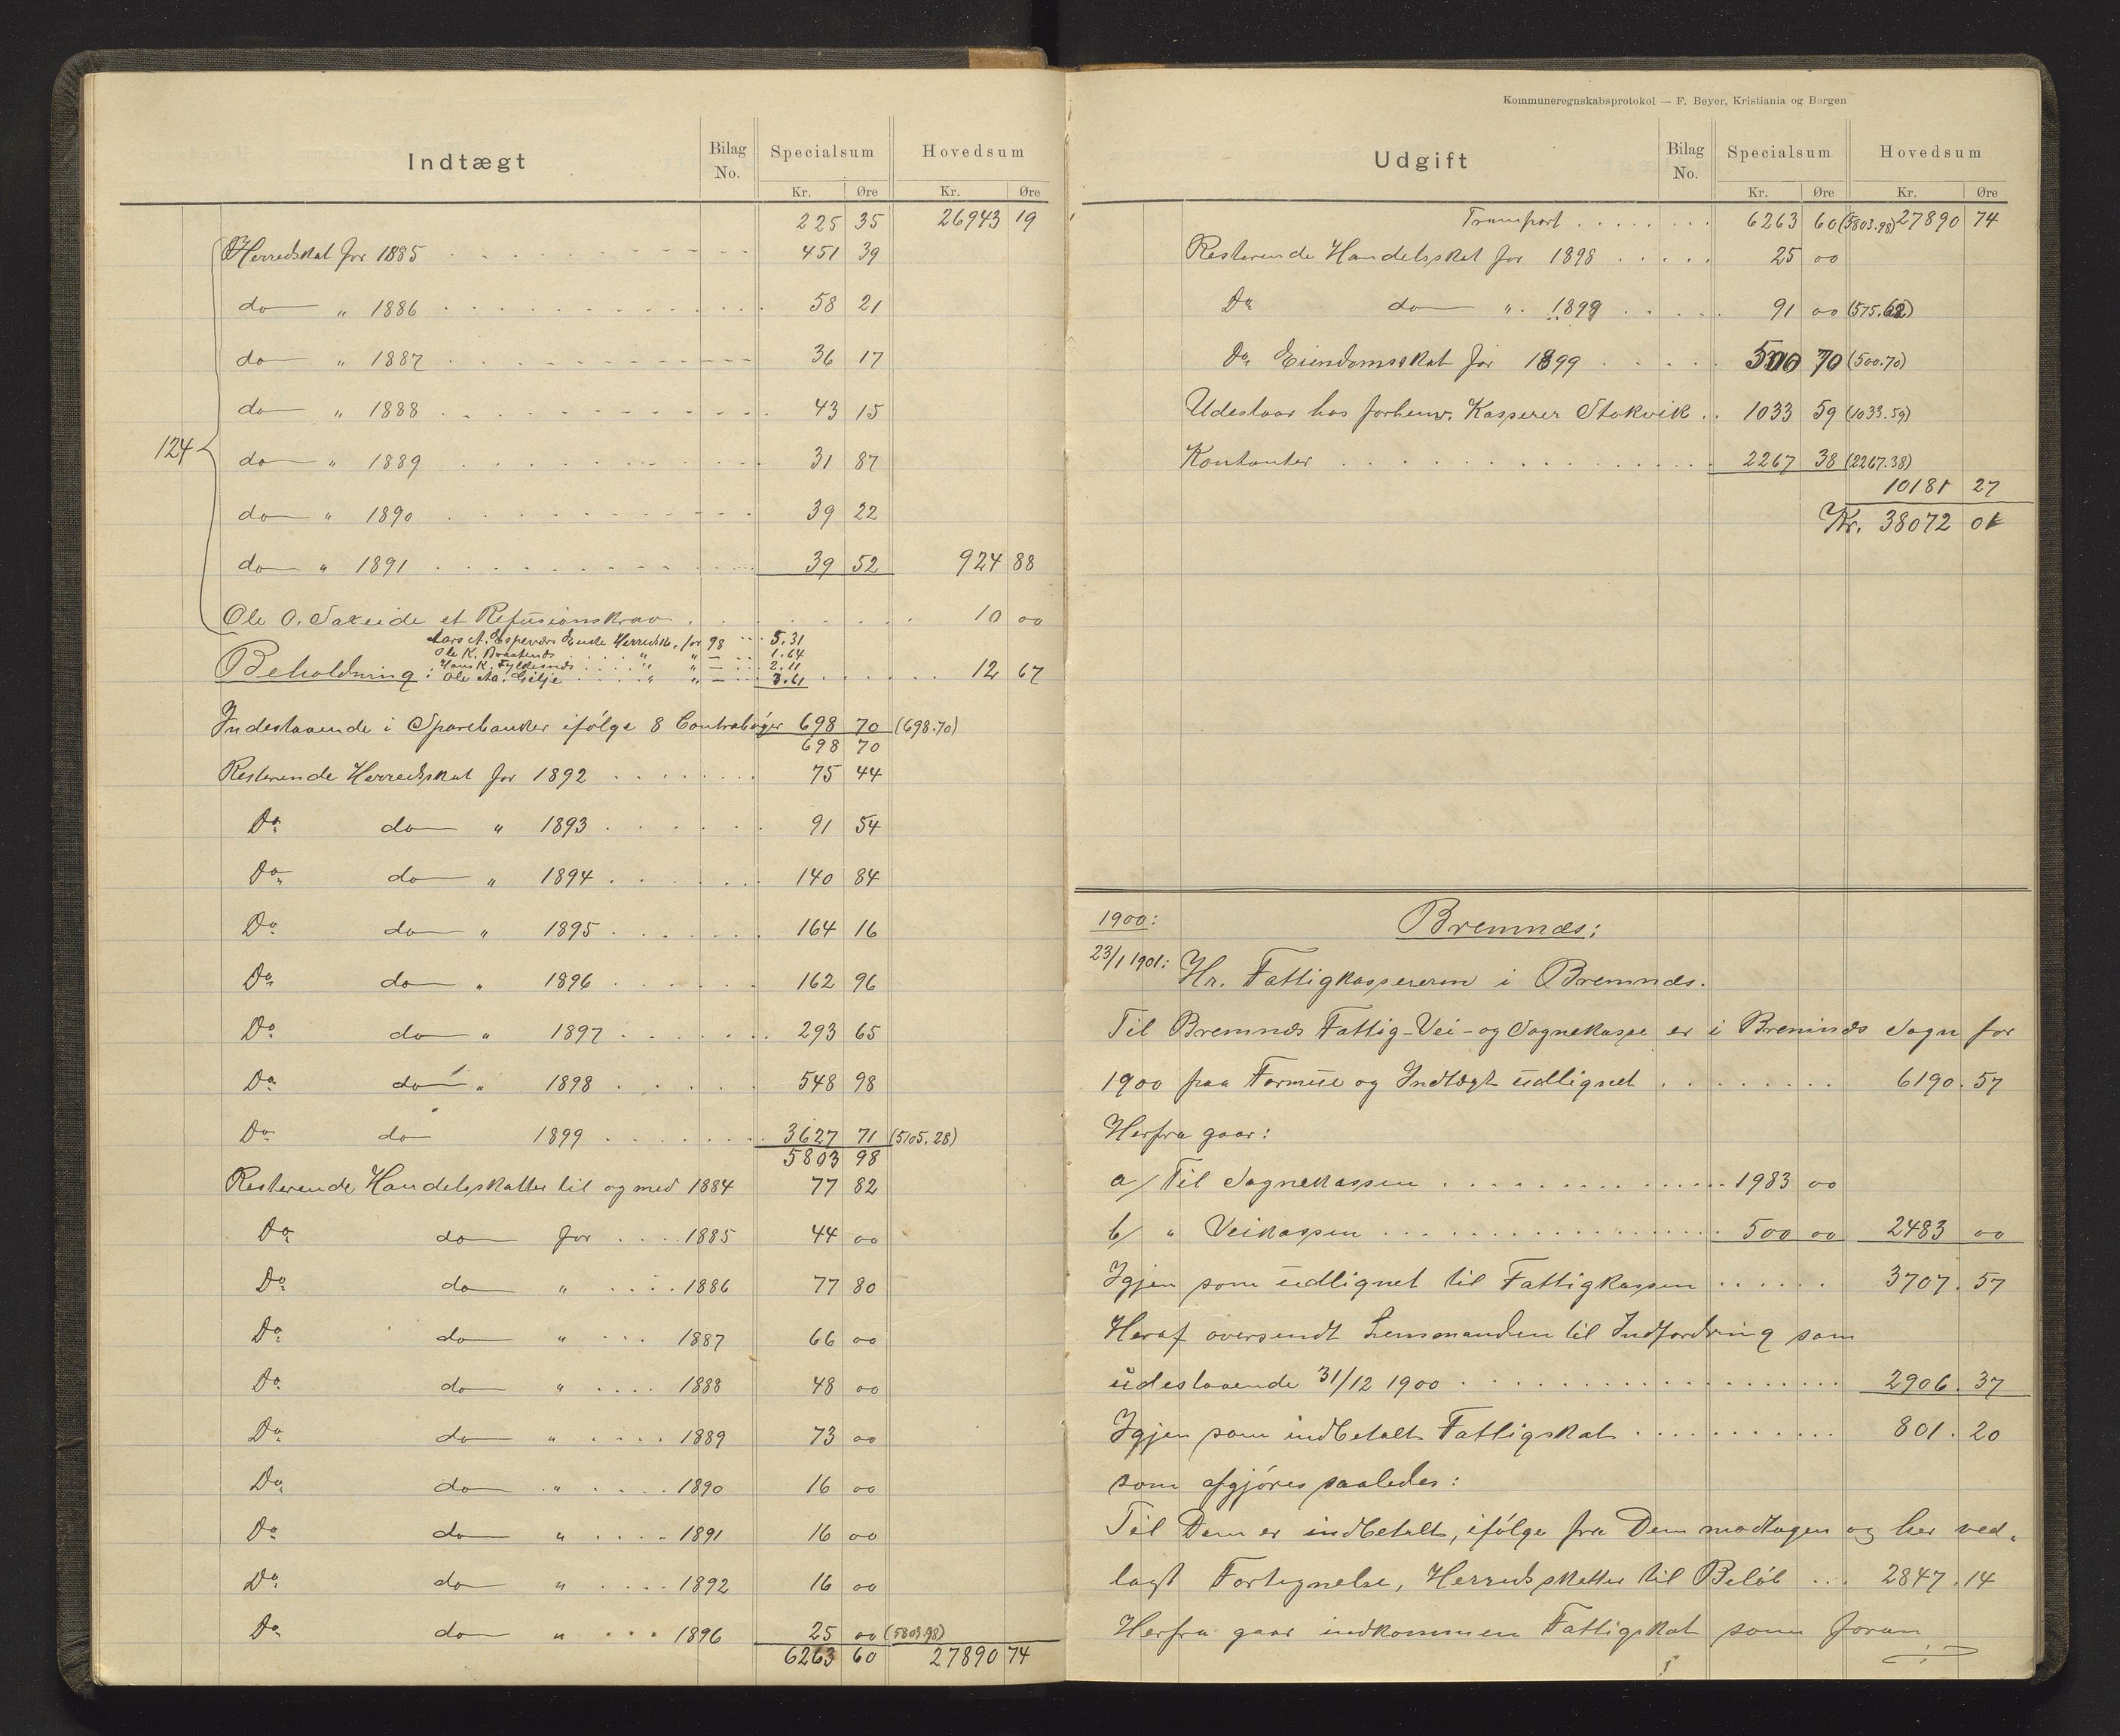 Indtægt Bilag No. Specialsum Hovedsum
Kr. Øre Kr. Øre
225 35 26943 19
Herredskat for 1885 451 39
do " 1886 58 21
do " 1887 36 17
do " 1888 43 15
124
do " 1889 31 87
do " 1890 39 22
do " 1891 39 52 924 88
Ole O. Sakeide et Refusionskrav 10 00
Lars A. Espevær Enke Herredsk. for 98 5.31
Ole K. Braatenes " " — 1.64
Hans K. Fylkesnes " " — 2.11
Beholdning: Ole Aa. Gilje " " — 3.61 12 67
Indestaaende i Sparebanker ifølge 8 Contrabøger 698 70 (698.70)
698 70
Resterende Herredsskat for 1892 75 44
Do do " 1893 91 54
Do do " 1894 140 84
Do do " 1895 164 16
Do do " 1896 162 96
Do do " 1897 293 65
Do do " 1898 548 98
Do do 1899 3627 71 (5105.28)
5803 98
Resterende Handelsskatter til og med 1884 77 82
Do do for 1885 44 00
Do do " 1886 77 80
Do do " 1887 66 00
Do do " 1888 48 00
Do do " 1889 73 00
Do do " 1890 16 00
Do do " 1891 16 00
Do do " 1892 16 00
Do do " 1896 25 00 (5803.98)
6263 60 27890 74
Kommuneregnskabsprotokol — F. Beyer, Kristiania og Bergen
Udgift Bilag No. Specialsum Hovedsum
Kr. Øre Kr. Øre
Transport 6263 60 (5803.98) 27890 74
Resterende Handelsskat for 1898 25 00
Do do " 1899 91 00 (575.62)
Do Eiendomsskat for 1899 500 70 (500.70)
Udestaar hos forhenv. Kasserer Stokvik 1033 59 (1033.59)
Kontanter 2267 38 (2267.38)
10181 27
Kr. 38072 01
1900: Bremnæs:
23/1 1901: Hr. Fattigkassereren i Bremnæs.
Til Bremnæs Fattig-Vei-og Sognekasse er i Bremnæs Sogn for
1900 paa Formue og Indtægt udlignet 6190.57
Herfra gaar:
a/ Til Sognekassen 1983 00
b/ " Veikassen 500 00 2483 00
Igjen som udlignet til Fattigkassen 3707.57
Heraf oversendt Lensmanden til Indfordring som
udestaaende 31/12 1900 2906.37
Igjen som indbetalt Fattigskat 801.20
som afgjøres saaledes:
Til Dem er indbetalt, ifølge fra Dem modtagen og her ved-
lagt Fortegnelse, Herredsskatter til Beløb 2847.14
Herfra gaar indkommen Fattigskat som foran